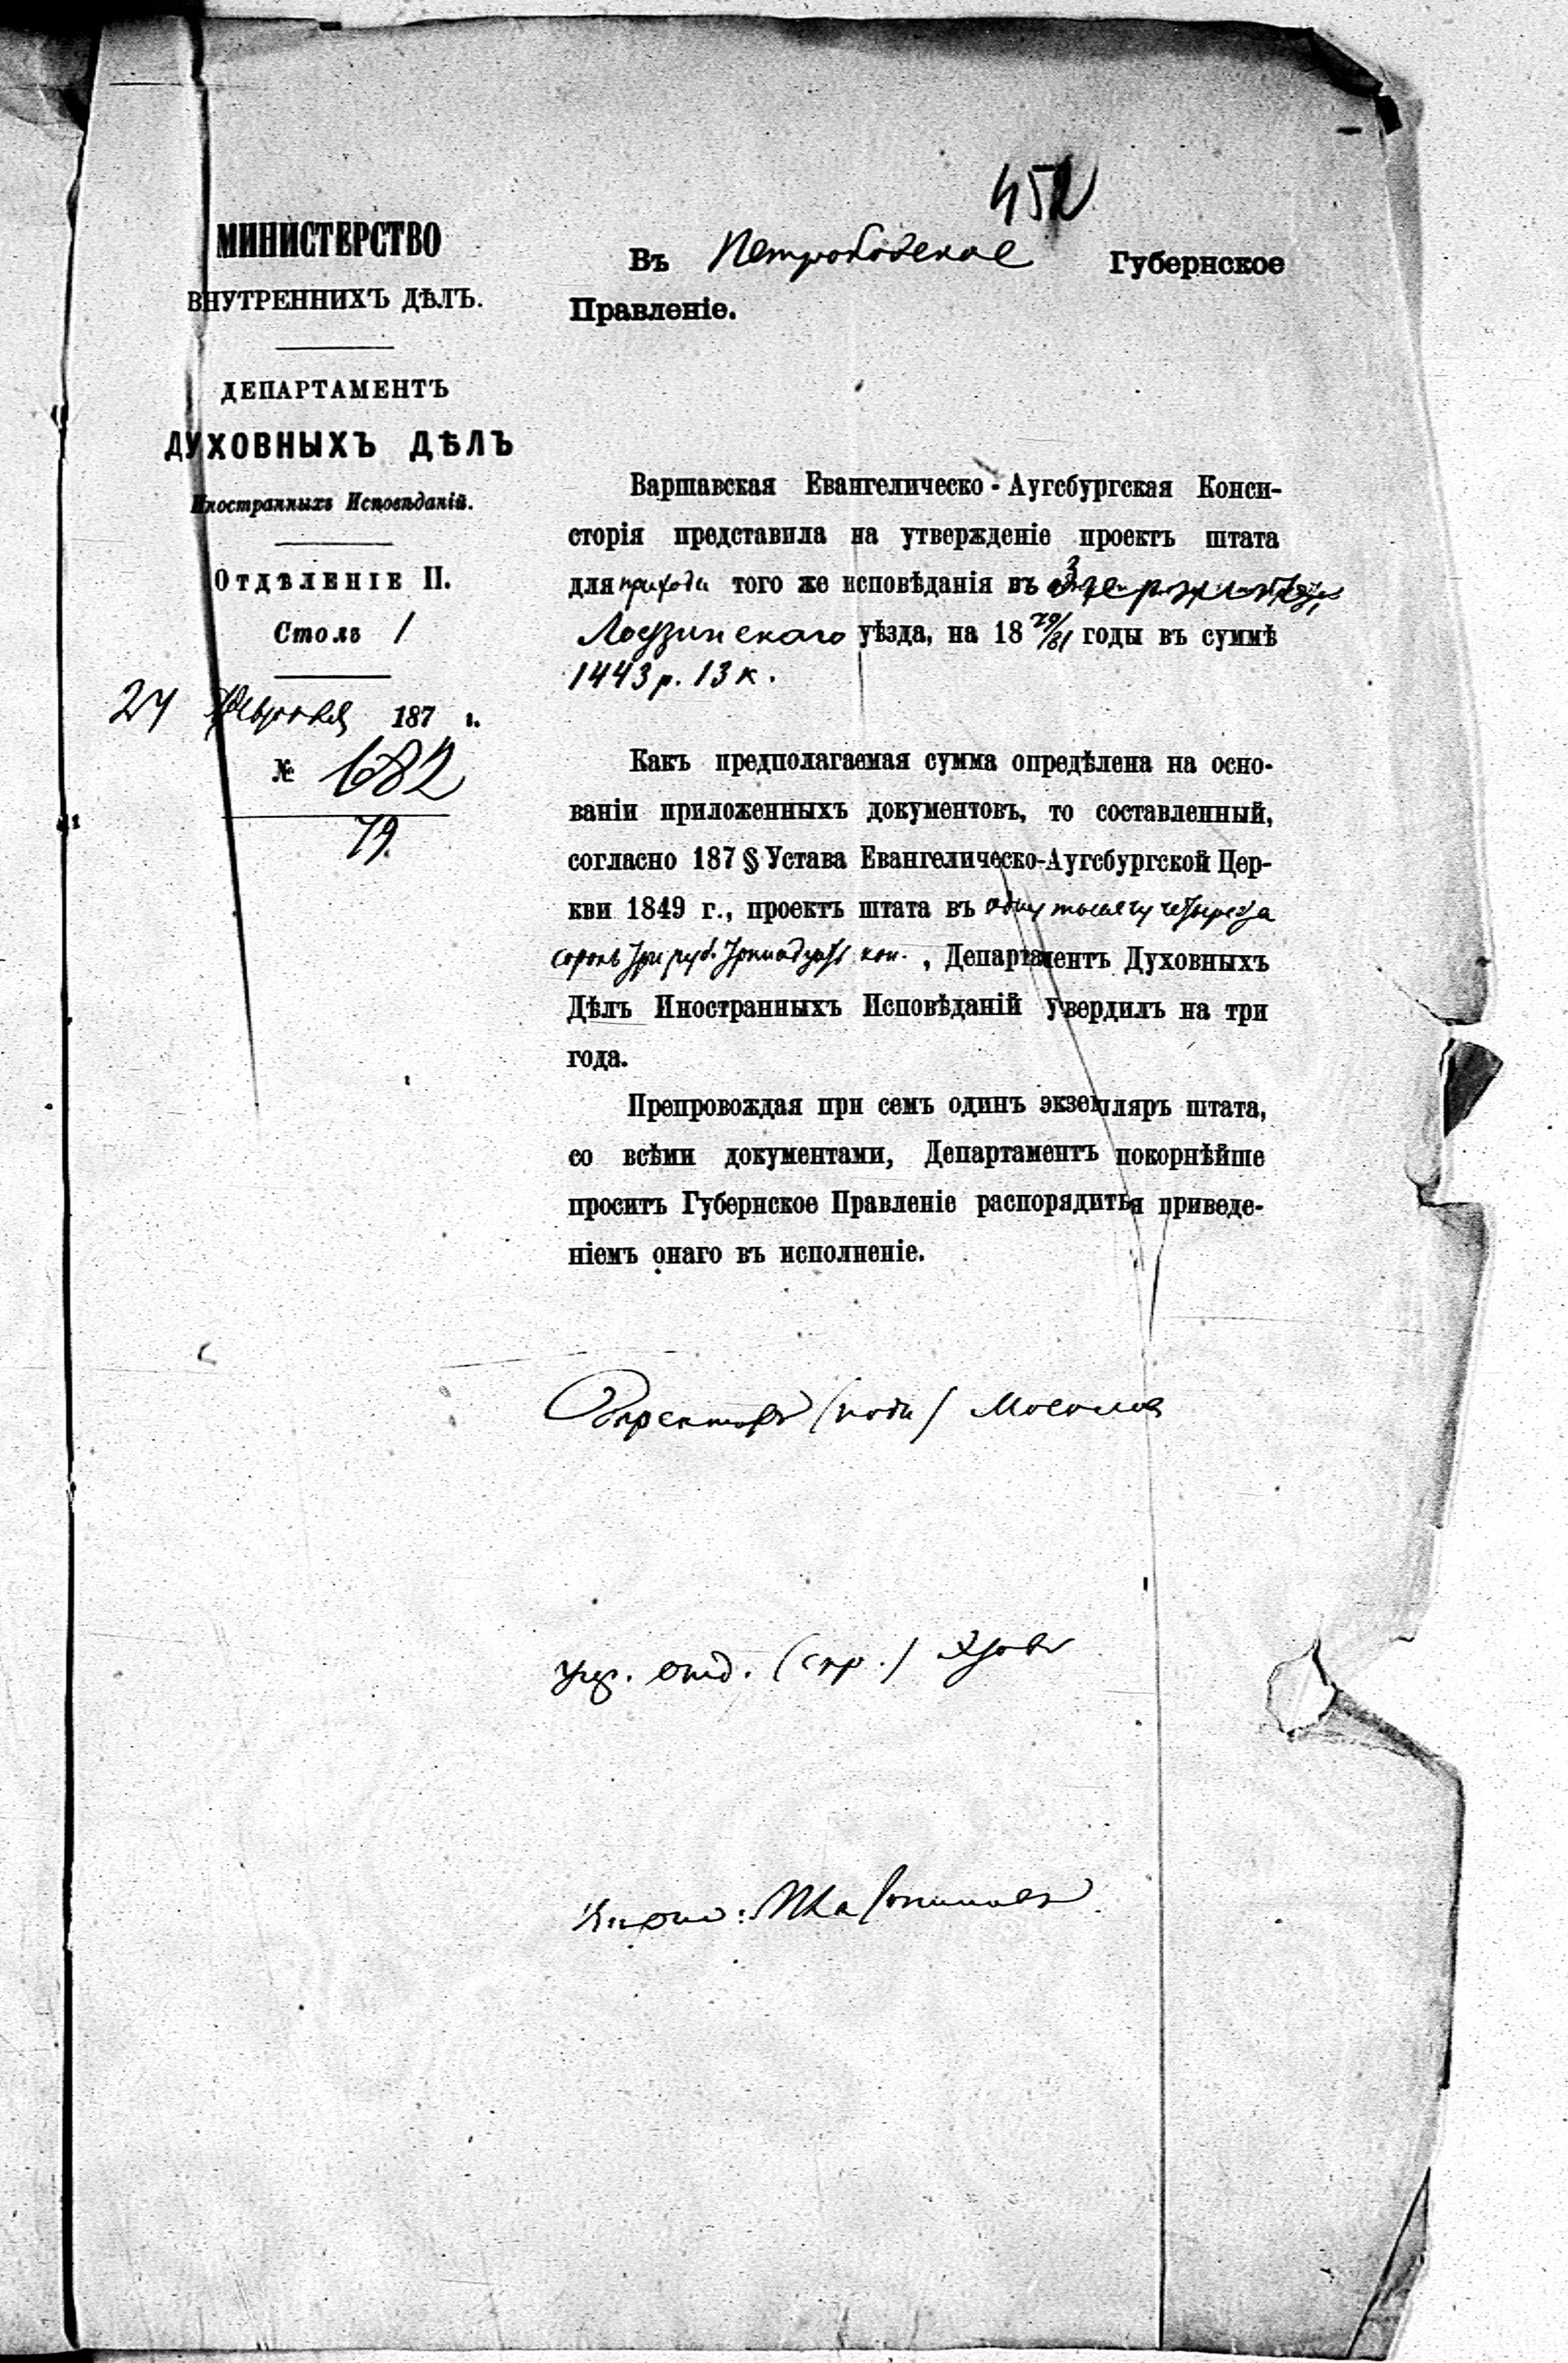 452
МИНИСТЕРСТВО
ВНУТРЕННИХЪ ДѢЛЪ.
ДЕПАРТАМЕНТЪ
ДУХОВНЫХЪ ДѢЛЪ
Иностранныхъ Исповѣданій.
ОТДѢЛЕНІЕ II.
Столъ 1
24 Февраля 187 г.
№ 682
79
Въ Петроковское Губернское
Правленіе.
Варшавская Евангелическо-Аугсбургская Конси-
сторія представила на утвержденіе проектъ штата
для прихода того же исповѣданія въ
уѣзда, на 18 79/81 годы въ суммѣ
1443 р. 13 к.
Какъ предполагаемая сумма опредѣлена на осно-
ваніи приложенныхъ документовъ, то составленный,
согласно 187 § Устава Евангелическо-Аугсбургской Цер-
кви 1849 г., проектъ штата въ одну тысячу четыреста
сорокъ три руб. тринадцать коп., Департаментъ Духовныхъ
Дѣлъ Иностранныхъ Исповѣданій утвердилъ на три
года.
Препровождая при семъ одинъ экземпляръ штата,
со всѣми документами, Департаментъ покорнѣйше
проситъ Губернское Правленіе распорядиться приведе-
ніемъ онаго въ исполненіе.
Директоръ (подп) Мосоловъ
отд. (скр.)